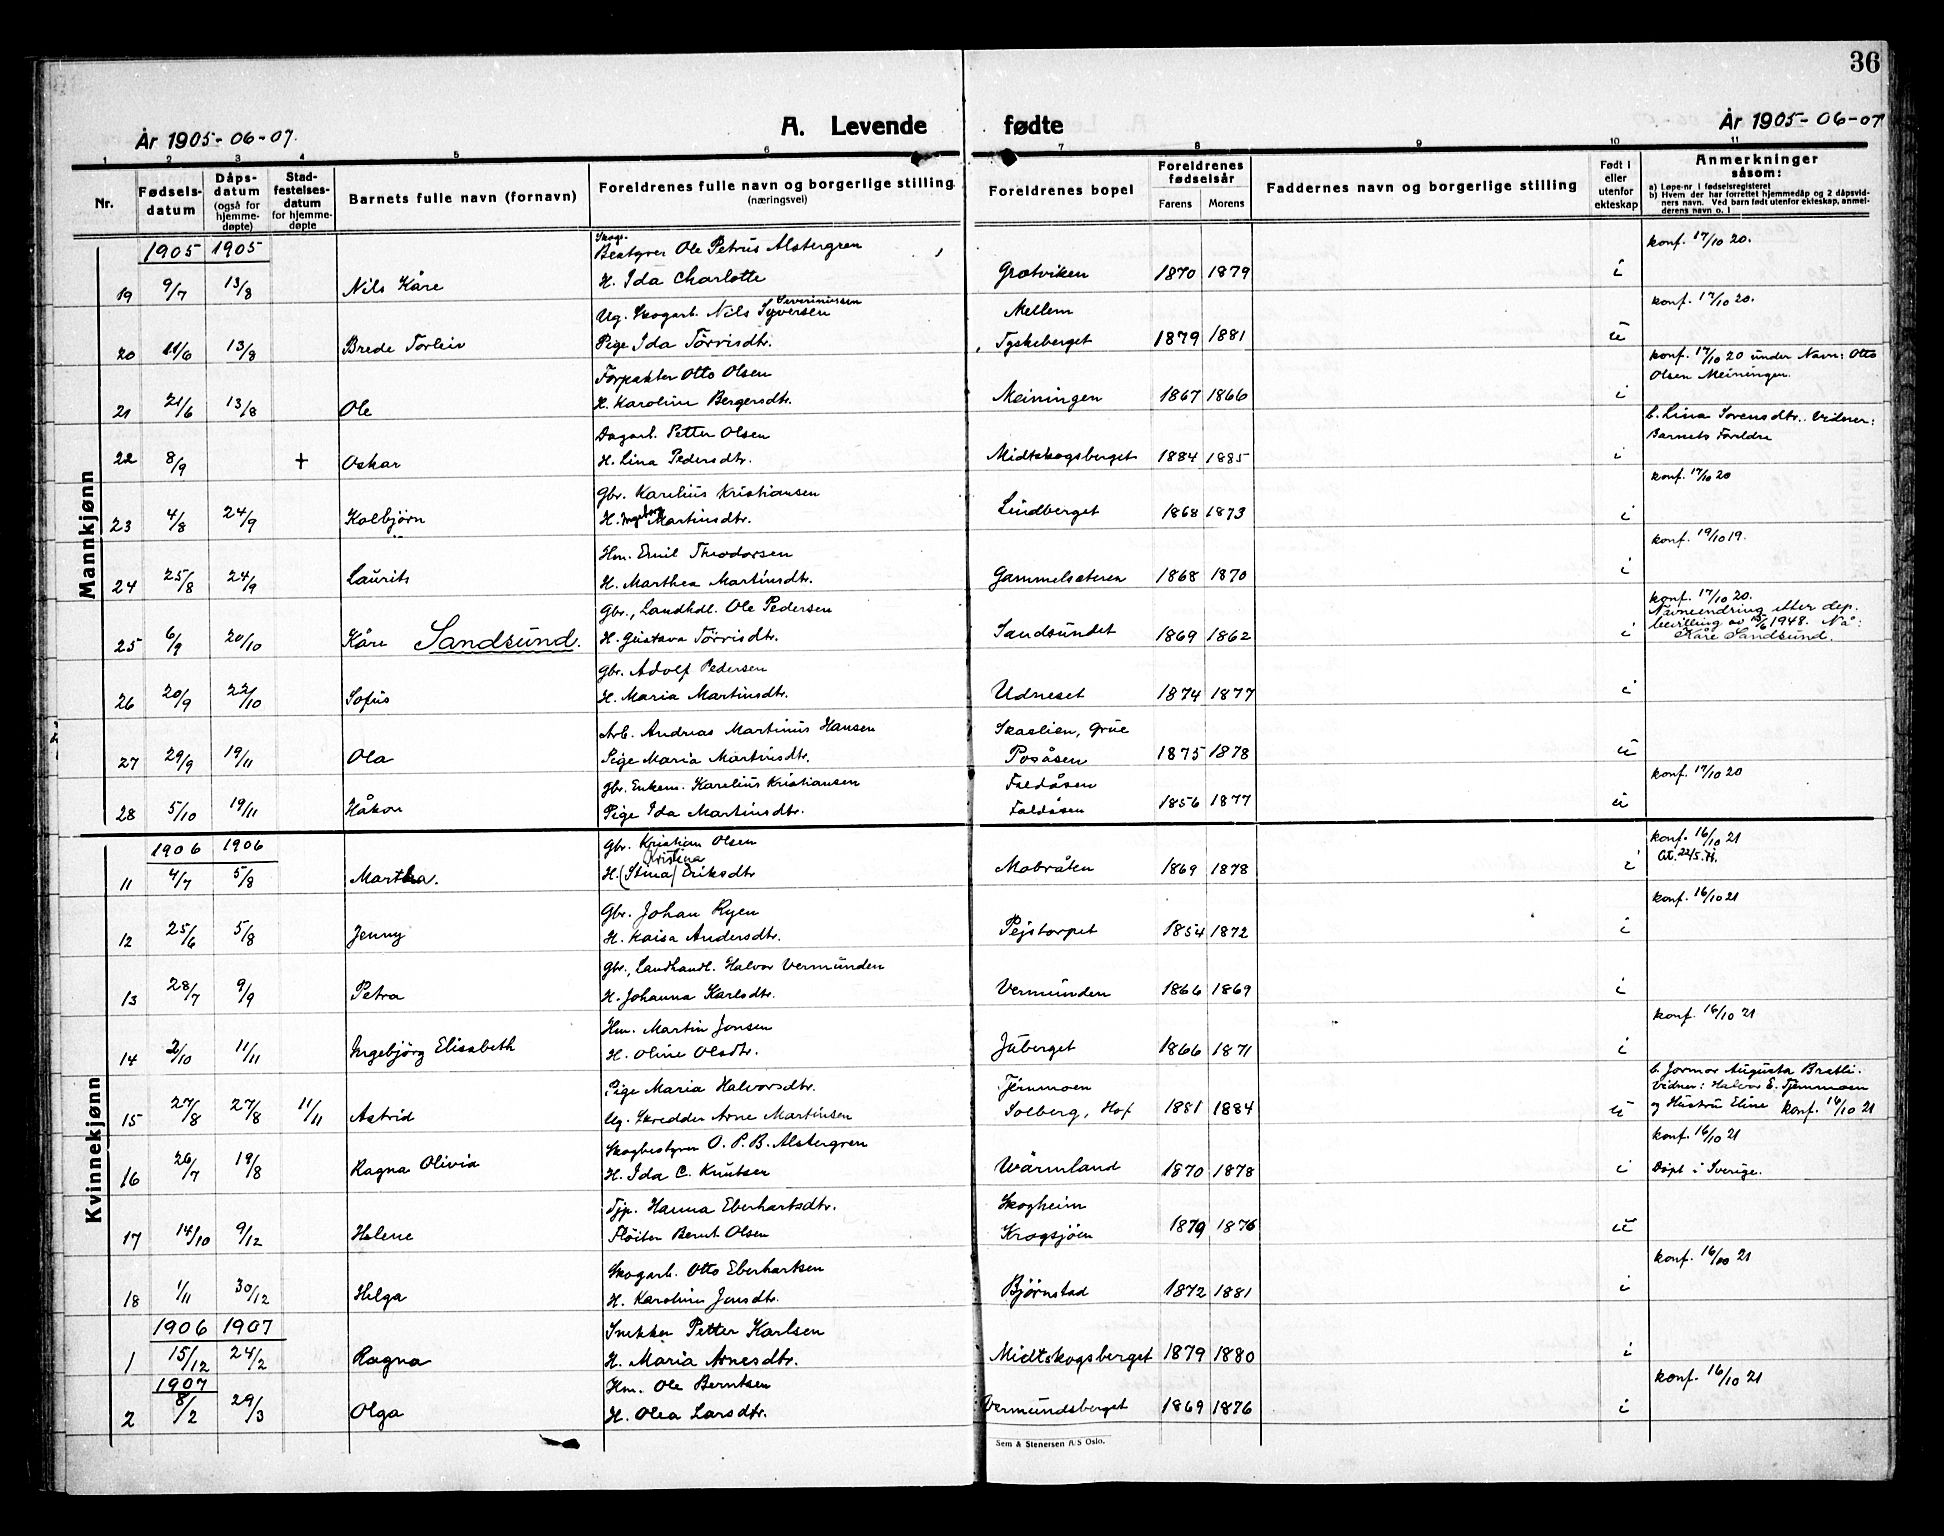 36
År 1905-06-07.
A. Levende
fødte
År 1905-06-07
1 2 3 4 5 6 7 8 9 10 11
Nr.
Fødsels-
datum
Dåps-
datum
(også for
hjemme-
døpte)
Stad-
festelses-
datum
for hjemme-
døpte
Barnets fulle navn (fornavn)
Foreldrenes fulle navn og borgerlige stilling
(næringsvei)
Foreldrenes bopel
Foreldrenes
fødselsår
Farens Morens
Faddernes navn og borgerlige stilling
Født i
eller
utenfor
ekteskap
Anmerkninger
såsom:
a) Løpe-nr i fødselsregisteret
b) Hvem der har forrettet hjemmedåp og 2 dåpsvid-
ners navn. Ved barn født utenfor ekteskap, anmel-
derens navn o. l
Mannkjønn
1905 1905
Skogs.
Bestyrer Ole Petrus Alstergren
konf. 17/10 20.
19 9/7 13/8 Nils Kåre H. Ida Charlotte Grøtviken 1870 1879 i
Ug. Skogarb. Nils Syversen Severinussen Mellem konf. 17/10 20.
20 11/6 13/8 Brede Torleiv Pige Ida Tørrisdtr. Tyskeberget 1879 1881 u
Forpakter Otto Olsen konf. 17/10 20 under Navn: Otto
Olsen Meiningen.
21 21/6 13/8 Ole H. Karoline Bergersdtr. Meiningen 1867 1866 i
Dagarb. Petter Olsen b. Lina Sorensdtr. Vidner:
Barnets Foreldre
22 8/9 † Oskar H. Lina Pedersdtr. Midtskogsberget 1884 1885 i
Gbr. Karelius Kristiansen konf. 17/10 20
23 4/8 24/9 Kolbjørn H. Ingeborg Martinsdtr. Lindberget 1868 1873 i
Hm. Emil Theodorsen konf. 19/10 19.
24 25/8 24/9 Laurits H. Marthea Martinsdtr. Gammelsæteren 1868 1870 i
Gbr., Landhdl. Ole Pedersen konf. 17/10 20.
Navneendring etter dep.
bevilling av 15/6 1948. Nå:
Kåre Sandsund.
25 6/9 20/10 Kåre Sandsund. H. Gustava Tørrisdtr. Sandsundet 1869 1862 i
Gbr. Adolf Pedersen
26 20/9 22/10 Sofus H. Maria Martinsdtr. Udneset 1874 1877 i
Arb. Andreas Martinus Hansen Skaslien, Grue
27 29/9 19/11 Ola Pige Maria Martinsdtr. Posåsen 1875 1878 u
Gbr. Enkem. Karelius Kristiansen Faldåsen konf. 17/10 20
28 5/10 19/11 Håkon Pige Ida Martinsdtr. Faldåsen 1856 1877 u
Kvinnekjønn
1906 1906 Gbr. Kristian Olsen konf. 16/10 21
Kristina
11 4/7 5/8 Martha. H. (Stina) Eriksdtr Mobråten 1869 1878 i At. 22/5.71.
Gbr. Johan Ryen konf. 16/10 21
12 25/6 5/8 Jenny H. Kaisa Andersdtr. Pejstorpet 1854 1872 i
Gbr., Landhandl. Halvor Vermunden
13 28/7 9/9 Petra H. Johanna Karlsdtr. Vermunden 1866 1869 i
Hm. Martin Jonsen konf. 16/10 21
14 2/10 11/11 Ingebjörg Elisabeth H. Oline Olsdtr. Juberget 1866 1871 i
Pige Maria Halvorsdtr. Tjernmoen b. Jormor Augusta Bratli.
Vidner: Halvor E. Tjernmoen
15 27/8 27/8 11/11 Astrid Ug. Skredder Arne Martinsen Solberg, Hof 1881 1884 u og Hustru Eline konf. 16/10 21
Skogbestyrer O. P. B. Alstergren konf. 16/10 21
16 26/7 19/8 Ragna Olivia H. Ida C. Knutsen Wärmland 1870 1878 i Døpt i Sverige.
Tjp. Hanna Eberhartsdtr. Skogheim
17 14/10 9/12 Helene Fløiter Bernt Olsen Krogsjøen 1879 1876 u
Skogarb. Otto Eberhartsen konf. 16/10 21
18 1/11 30/12 Helga H. Karoline Jensdtr. Bjørnstad 1872 1881 i
1906 1907 Snekker Petter Karlsen
1 15/12 24/2 Ragna H. Maria Arnesdtr. Midtskogsberget 1879 1880 i
1907 Hm. Ole Berntsen konf. 16/10 21
2 8/2 29/3 Olga H. Olea Larsdtr. Vermundsberget 1869 1876 i
Sem & Stenersen A/S Oslo.